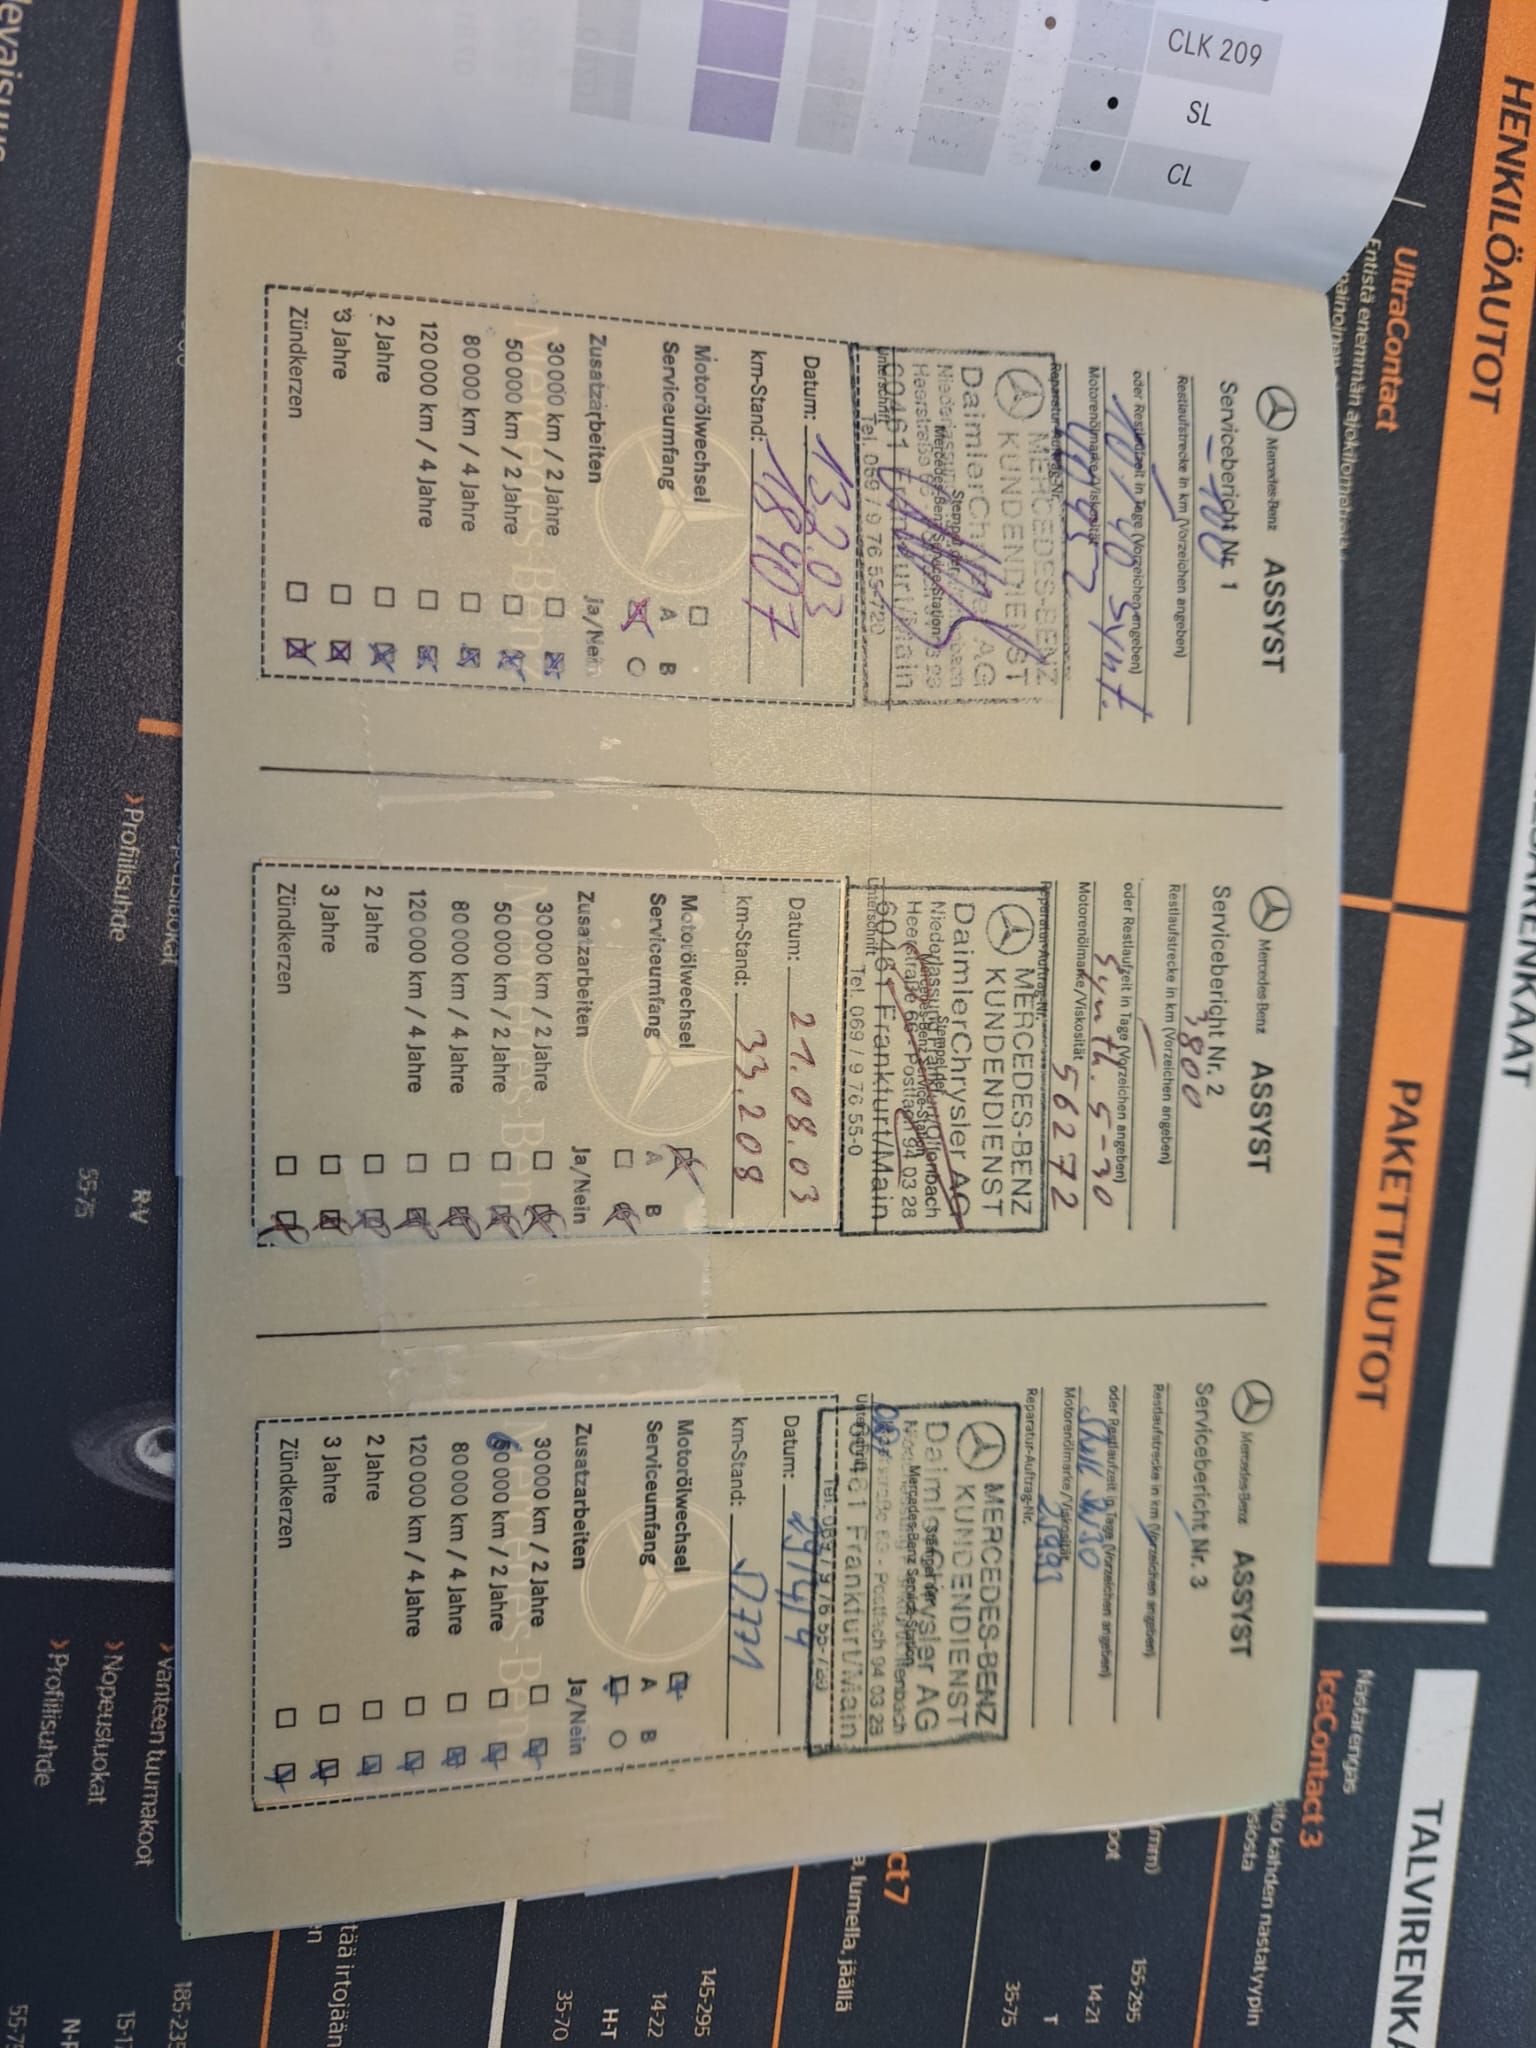 CLK 209
SL
CL
Mercedes-Benz ASSYST
Servicebericht Nr. 1
- 100
Restlaufstrecke in km (Vorzeichen angegeben)
oder Restlaufzeit in Tage (Vorzeichen angegeben)
10W40 Synt.
Motorenölmarke/Viskosität
Reparatur-Auftrag-Nr.
MERCEDES-BENZ
KUNDENDIENST
DaimlerChrysler AG
Stempel der
Mercedes-Benz Service-Station
60461 Frankfurt/Main
Unterschrift
Tel. 069 / 9 76 55-720
Datum: 13.2.03
km-Stand: 18907
Motorölwechsel
Serviceumfang A B
Zusatzarbeiten Ja/Nein
30 000 km / 2 Jahre
50 000 km / 2 Jahre
80 000 km / 4 Jahre
120 000 km / 4 Jahre
2 Jahre
3 Jahre
Zündkerzen
Mercedes-Benz
Mercedes-Benz ASSYST
Servicebericht Nr. 2
3800
Restlaufstrecke in km (Vorzeichen angegeben)
oder Restlaufzeit in Tage (Vorzeichen angegeben)
Synth. 5-30
Motorenölmarke/Viskosität
56272
Reparatur-Auftrag-Nr.
MERCEDES-BENZ
KUNDENDIENST
DaimlerChrysler AG
Niederlassung Frankfurt/Offenbach
Stempel der
Mercedes-Benz Service-Station
Heerstraße 66 - Postfach 94 03 28
60461 Frankfurt/Main
Unterschrift
Tel. 069 / 9 76 55-0
Datum: 21.08.03
km-Stand: 33.208
Motorölwechsel
Serviceumfang A B
Zusatzarbeiten Ja/Nein
30 000 km / 2 Jahre
50 000 km / 2 Jahre
80 000 km / 4 Jahre
120 000 km / 4 Jahre
2 Jahre
3 Jahre
Zündkerzen
Mercedes-Benz
Mercedes-Benz ASSYST
Servicebericht Nr. 3
Restlaufstrecke in km (Vorzeichen angegeben)
oder Restlaufzeit in Tage (Vorzeichen angegeben)
Motorenölmarke/Viskosität
Reparatur-Auftrag-Nr.
MERCEDES-BENZ
KUNDENDIENST
DaimlerChrysler AG
Stempel der
Mercedes-Benz Service-Station
60461 Frankfurt/Main
Unterschrift
Datum:
km-Stand:
Motorölwechsel
Serviceumfang A B
Zusatzarbeiten Ja/Nein
30 000 km / 2 Jahre
60 000 km / 2 Jahre
80 000 km / 4 Jahre
120 000 km / 4 Jahre
2 Jahre
3 Jahre
Zündkerzen
Mercedes-Benz
HENKILÖAUTOT
PAKETTIAUTOT
UltraContact
Entistä enemmän ajokilometrejä
TALVIRENKA
Nastarengas
IceContact 3
kahden nastatyypin
155-295
14-21
T
35-75
ct 7
lumella, jäällä
145-295
14-22
H-T
35-70
tää irtojään
› Vanteen tuumakoot
› Nopeusluokat
› Profiilisuhde
› Profiilisuhde
R-V
55-75
185-235
15-17